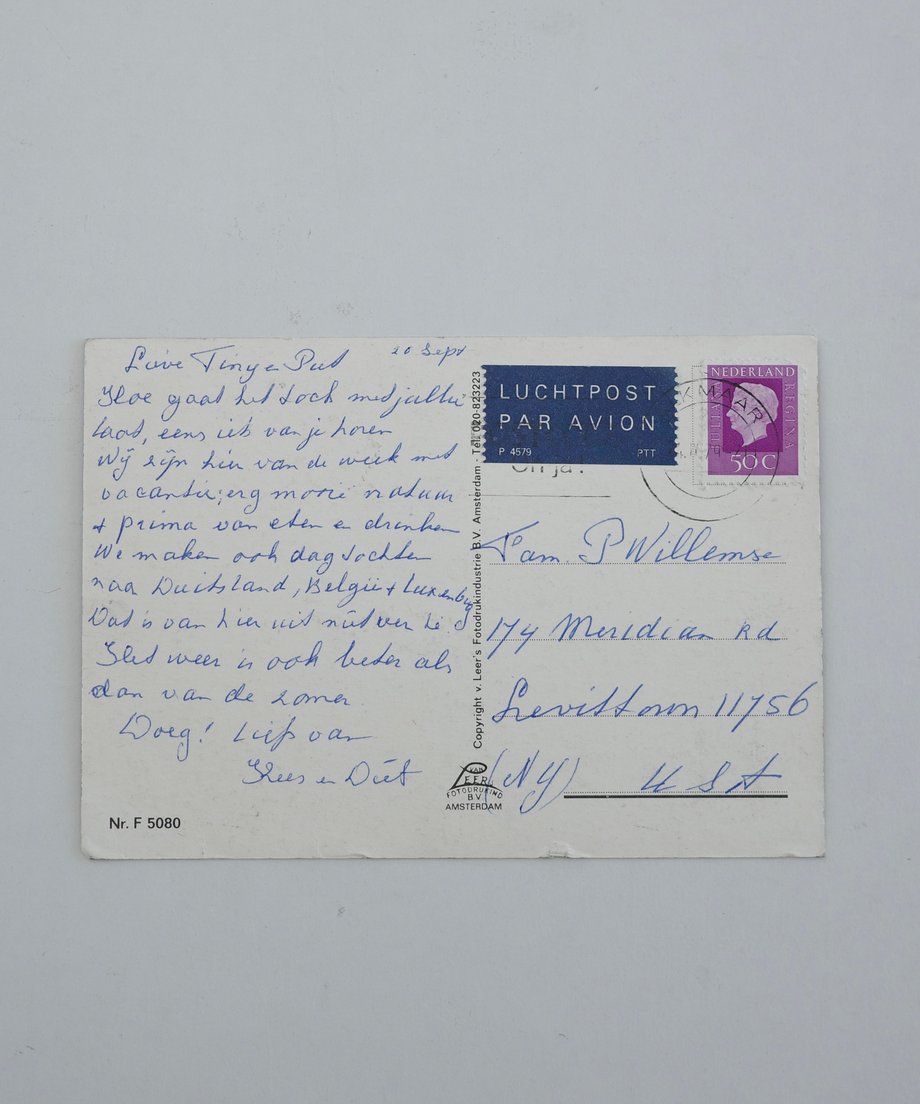 20 Sept
Lieve Tiny
Hoe gaat het toch met jullie
laat, eens iets van je horen
Wij zijn hier van de week met
vacantie; erg mooie natuur
+ prima van eten en drinken
We maken ook dagtochten
naar Duitsland, België + Luxenburg
Dat is van hier uit niet ver
Het weer is ook beter als
dan van de zomer
Doeg! Liefs van
Kees en Diet
Nr. F 5080
Copyright v. Leer's Fotodrukindustrie B.V. Amsterdam. Tel. 020-823223
VAN LEER
FOTODRUKIND
B.V.
AMSTERDAM
LUCHTPOST
PAR AVION
P 4579 PTT
NEDERLAND
JULIANA REGINA
50 C
KMAAR
Fam. P Willemse
174 Meridian Rd
Levittown 11756
(NY) USA